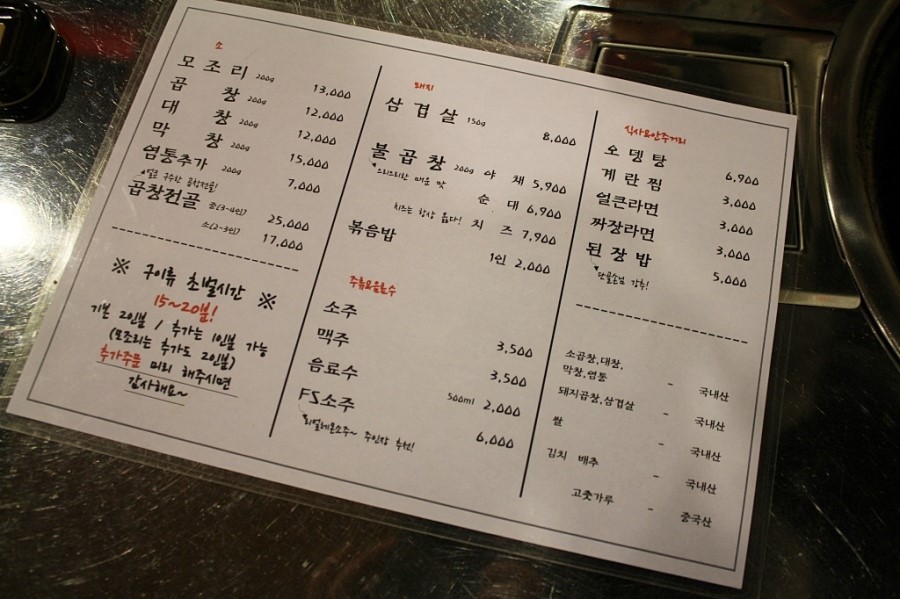 소
모조리 200g 13,000
곱창 200g 12,000
대창 200g 12,000
막창 200g 15,000
염통추가 200g 7,000
곱창전골 중(3~4인) 25,000
소(2~3인) 17,000
※ 구이류 초벌시간 ※
15~20분!
기본 2인분 / 추가는 1인분 가능
(모조리는 추가도 2인분)
추가주문 미리 해주시면
감사해요~
돼지
삼겹살 150g 8,000
불곱창 200g 야채 5,900
스리스리한 매운 맛
순대 6,900
치즈는 항상 옳다! 치즈 7,900
볶음밥 1인 2,000
주류&음료수
소주 3,500
맥주 3,500
음료수 500ml 2,000
FS소주 6,000
주인장 추천!
식사&안주거리
오뎅탕 6,900
계란찜 3,000
얼큰라면 3,000
짜장라면 3,000
된장밥 5,000
단골손님 강추!
소곱창,대창,
막창,염통 - 국내산
돼지곱창,삼겹살 - 국내산
쌀 - 국내산
김치 배추 - 국내산
고춧가루 - 중국산